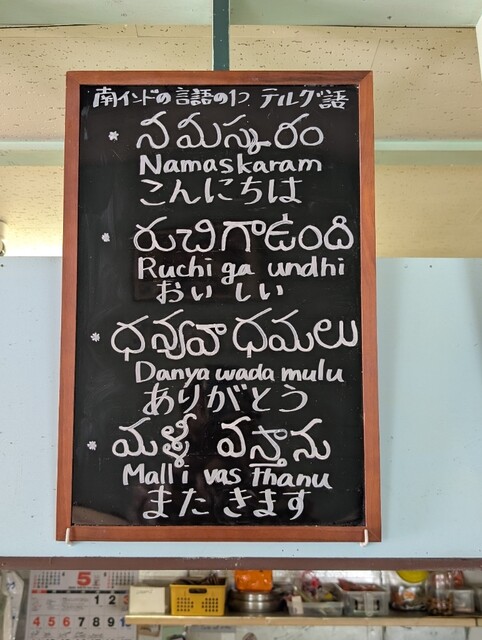 南インドの言語の1つ テルグ語
* నమస్కారం
Namaskaram
こんにちは
* రుచిగాఉంది
Ruchi ga undhi
おいしい
* ధన్యవాధములు
Danya wada mulu
ありがとう
* మళ్ళీ వస్తాను
Malli vas thanu
また きます
5
1 2
4 5 6 7 8 9